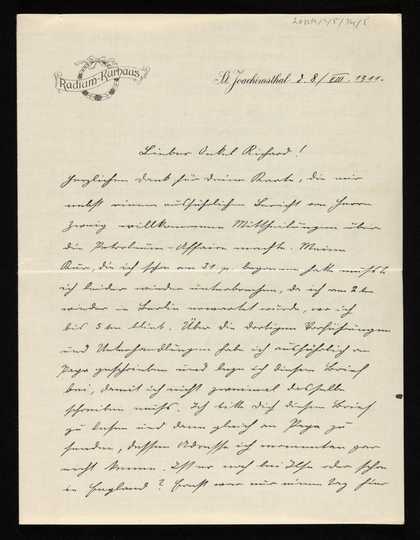 Radium-Kurhaus,
St. Joachimsthal d. 8./VIII. 1911.
Lieber Onkel Richard!
Herzlichen Dank für Deine Karte, die mir
nebst einem ausführlichen Bericht von Herrn
Zweig willkommene Mittheilungen über
die Petroleum-Affaire machte. Meine
Kur, die ich schon am 31. p. begonnen hatte mußte
ich leider wieder unterbrechen, da ich am 2ten
wieder in Berlin erwartet wurde, wo ich
bis 5ten blieb. Über die dortigen
und Unterhandlungen habe ich ausführlich an
Papa geschrieben und lege ich diesen Brief
bei, damit ich nicht zweimal dasselbe
schreiben muß. Ich bitte Dich diesen Brief
zu lesen und dann gleich an Papa zu
senden, dessen Adresse ich momentan gar
nicht kenne. Ist er noch bei Ilse oder schon
in England? Ernst war nur einen Tag hier